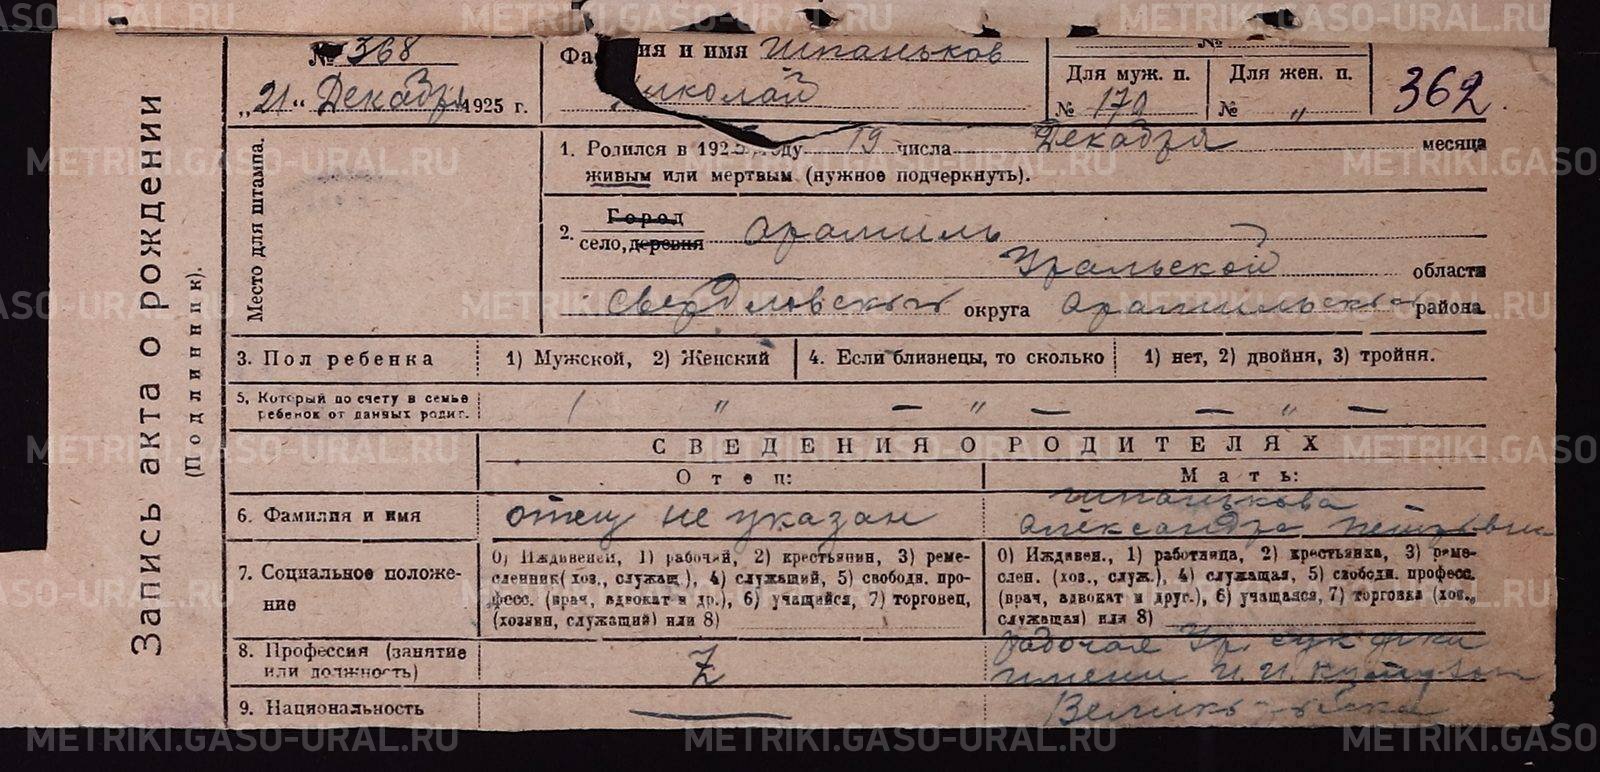 Запись акта о рождении
(Подлинник).
№ 368
„21“ Декабря 1925 г.
Место для штампа.
Фа ия и имя Шпаньков
Николай
№
Для муж. п.
№ 179
Для жен. п.
№ "
362.
1. Родился в 1925 году 19 числа Декабря месяца
живым или мертвым (нужное подчеркнуть).
2. Город
село, деревня Арамиль
Уральской области
Свердловский округа Арамильский района
3. Пол ребенка
1) Мужской, 2) Женский
4. Если близнецы, то сколько
1) нет, 2) двойня, 3) тройня.
5. Который по счету в семье
ребенок от данных родит.
/ " — " — — " —
СВЕДЕНИЯ О РОДИТЕЛЯХ
Отец:
Мать:
6. Фамилия и имя
отец не указан
Шпанькова
Александра Петровна
7. Социальное положе-
ние
0) Иждивенец, 1) рабочий, 2) крестьянин, 3) реме-
сленник (хоз., служащ.), 4) служащий, 5) свободн. про-
фесс. (врач, адвокат и др.), 6) учащийся, 7) торговец,
(хозяин, служащий) или 8)
0) Иждивен., 1) работница, 2) крестьянка, 3) реме-
слен. (хоз., служ.), 4) служащая, 5) свободн. професс.
(врач, адвокат и друг.), 6) учащаяся, 7) торговка (хоз.,
служащая) или 8)
8. Профессия (занятие
или должность)
Z
рабочая Ур. сук ф-ки
имени И. И.
9. Национальность
—
METRIKI.GASO-URAL.RU